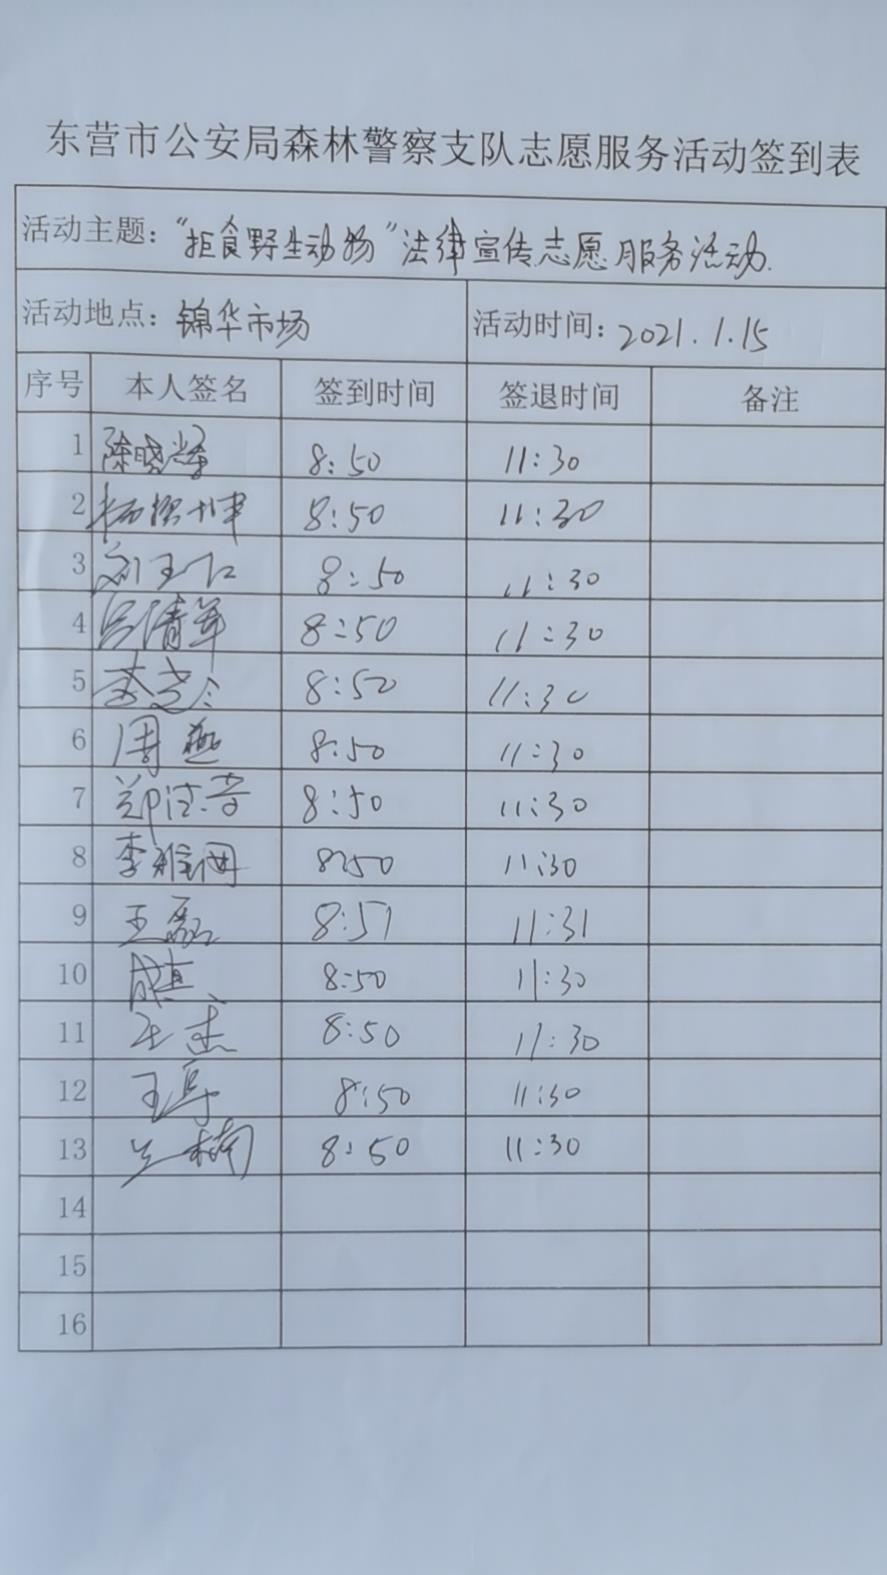 东营市公安局森林警察支队志愿服务活动签到表
活动主题：“拒食野生动物”法律宣传志愿服务活动.
活动地点：锦华市场 活动时间：2021.1.15
序号 本人签名 签到时间 签退时间 备注
1 陈晓 8:50 11:30
2 8:50 11:30
3 刘玉仁 8:50 11:30
4 吕清军 8:50 11:30
5 李 8:50 11:30
6 周燕 8:50 11:30
7 郑 8:50 11:30
8 李 8:50 11:30
9 王磊 8:51 11:31
10 成真 8:50 11:30
11 8:50 11:30
12 王 8:50 11:30
13 兰楠 8:50 11:30
14
15
16